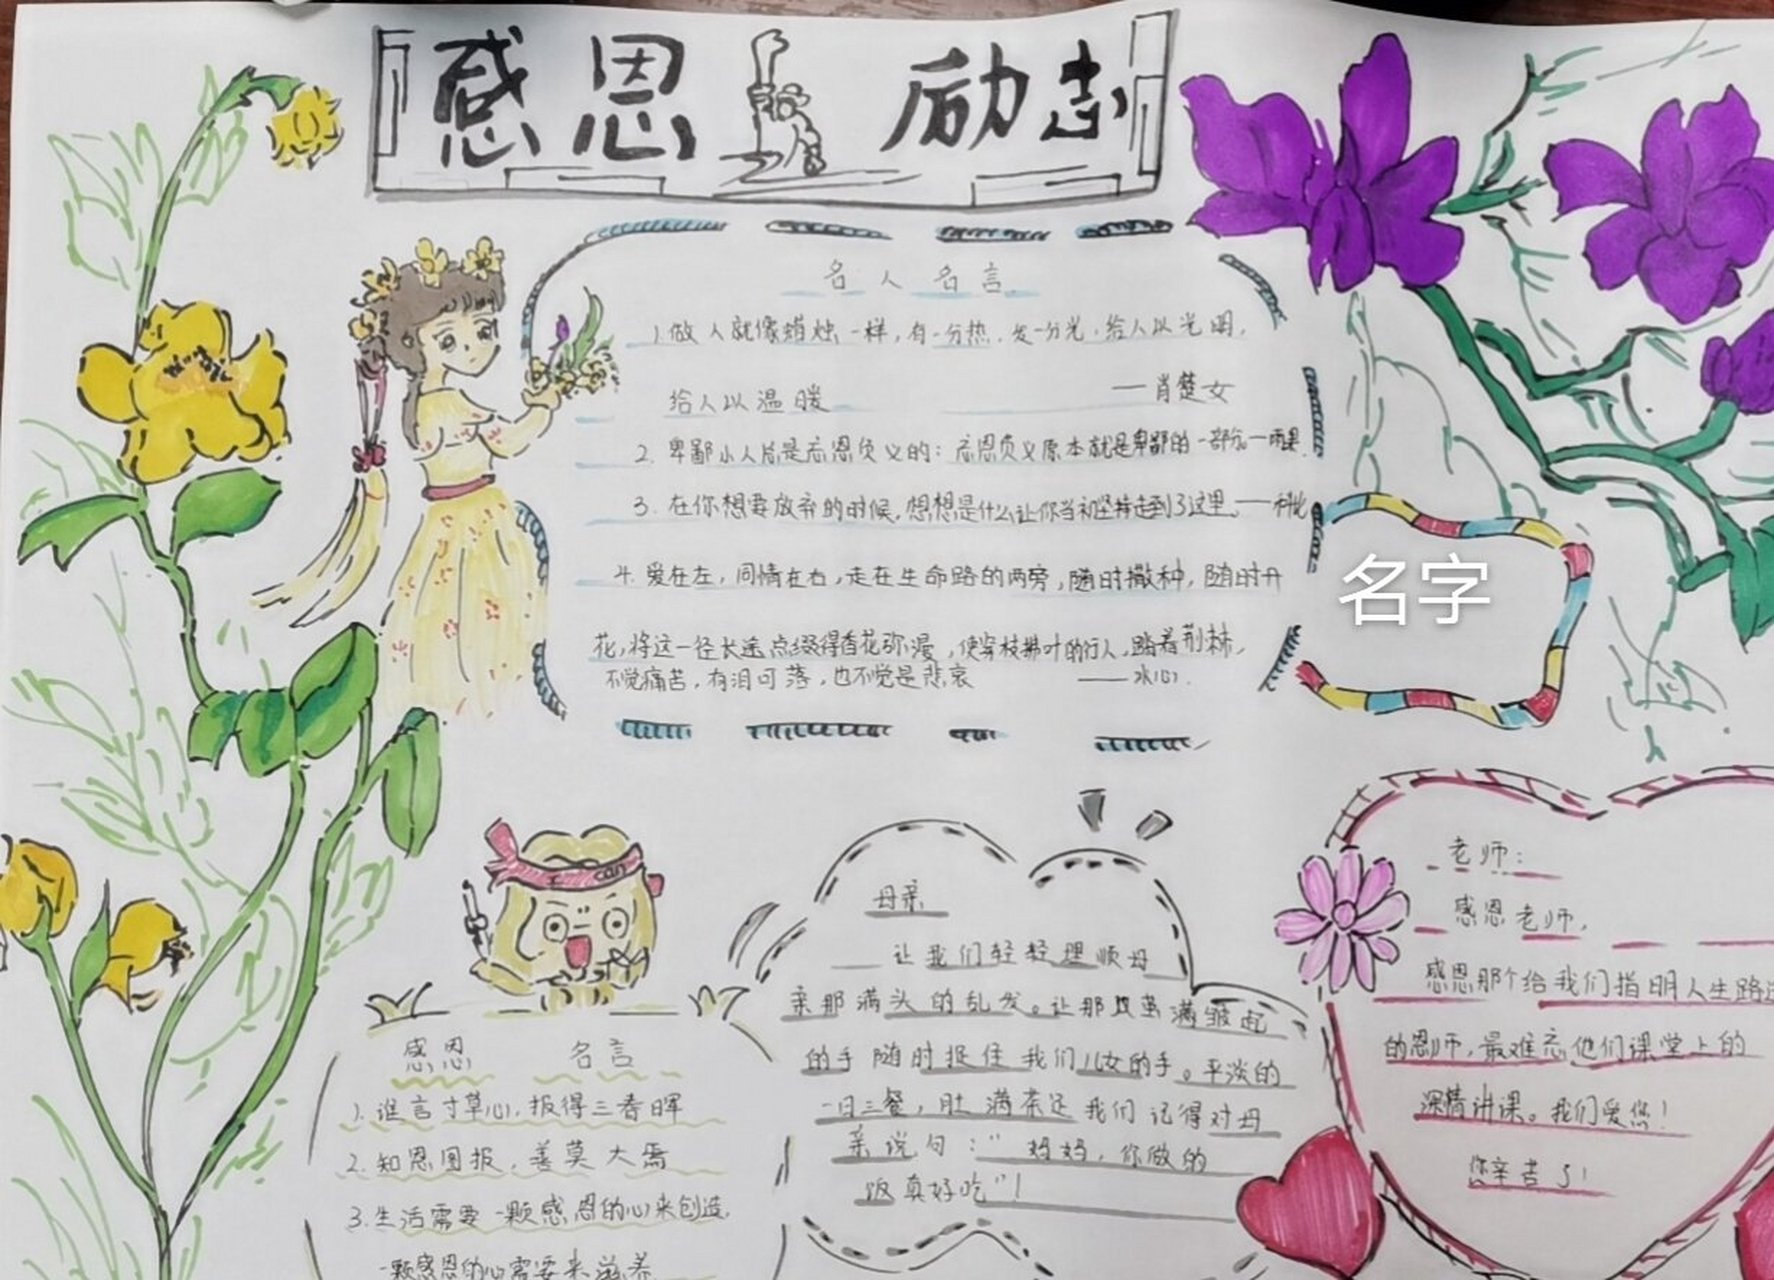 感恩 励志
名人名言
1.做人就像蜡烛一样,有一分热,发一分光,给人以光明,
给人以温暖 ——肖楚女
2.卑鄙小人总是忘恩负义的:忘恩负义原本就是卑鄙的一部分—雨果.
3.在你想要放弃的时候,想想是什么让你当初坚持走到了这里.——科比
4.爱在左,同情在右,走在生命路的两旁,随时撒种,随时开
花,将这一径长途点缀得香花弥漫,使穿枝拂叶的行人,踏着荆棘,
不觉痛苦,有泪可落,也不觉是悲哀 ——冰心.
名字
感恩 名言
1.谁言寸草心,报得三春晖
2.知恩图报,善莫大焉
3.生活需要一颗感恩的心来创造,
一颗感恩的心需要来滋养
母亲
让我们轻轻理顺母
亲那满头的乱发。让那双茧满皱起
的手随时握住我们儿女的手。平淡的
一日三餐,肚满茶还我们记得对母
亲说句:"妈妈,你做的
饭真好吃"!
老师:
感恩老师,
感恩那个给我们指明人生路途
的恩师,最难忘他们课堂上的
深情讲课。我们爱您!
您辛苦了!